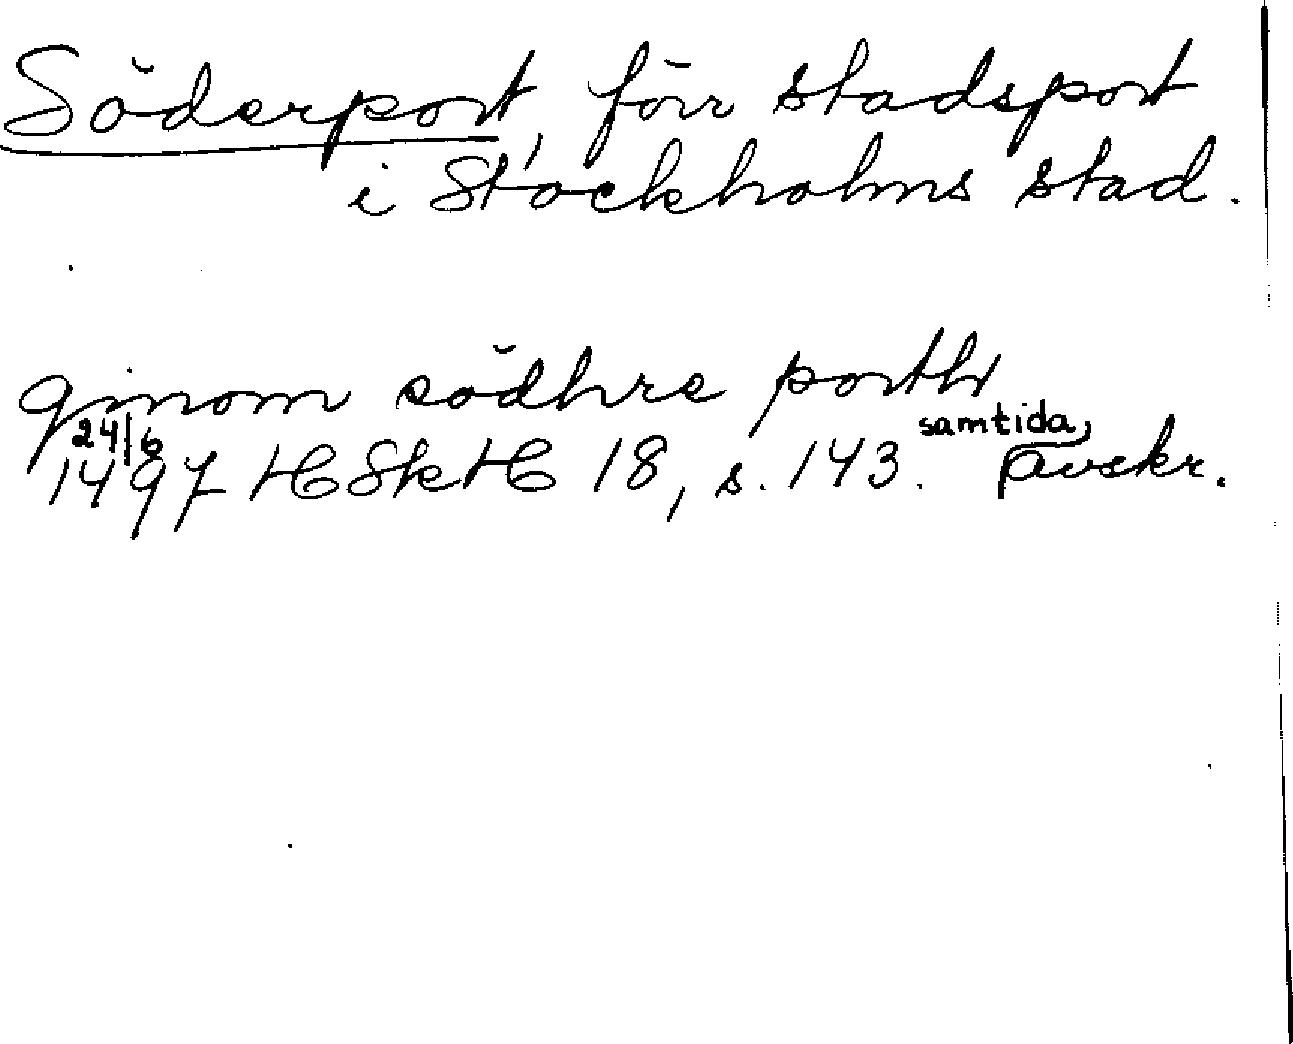 Söderport, förr stadsport
i Stockholms stad.
ginom södhre porthr
24/6 samtida
1497 HSkH 18, s. 143. avskr.